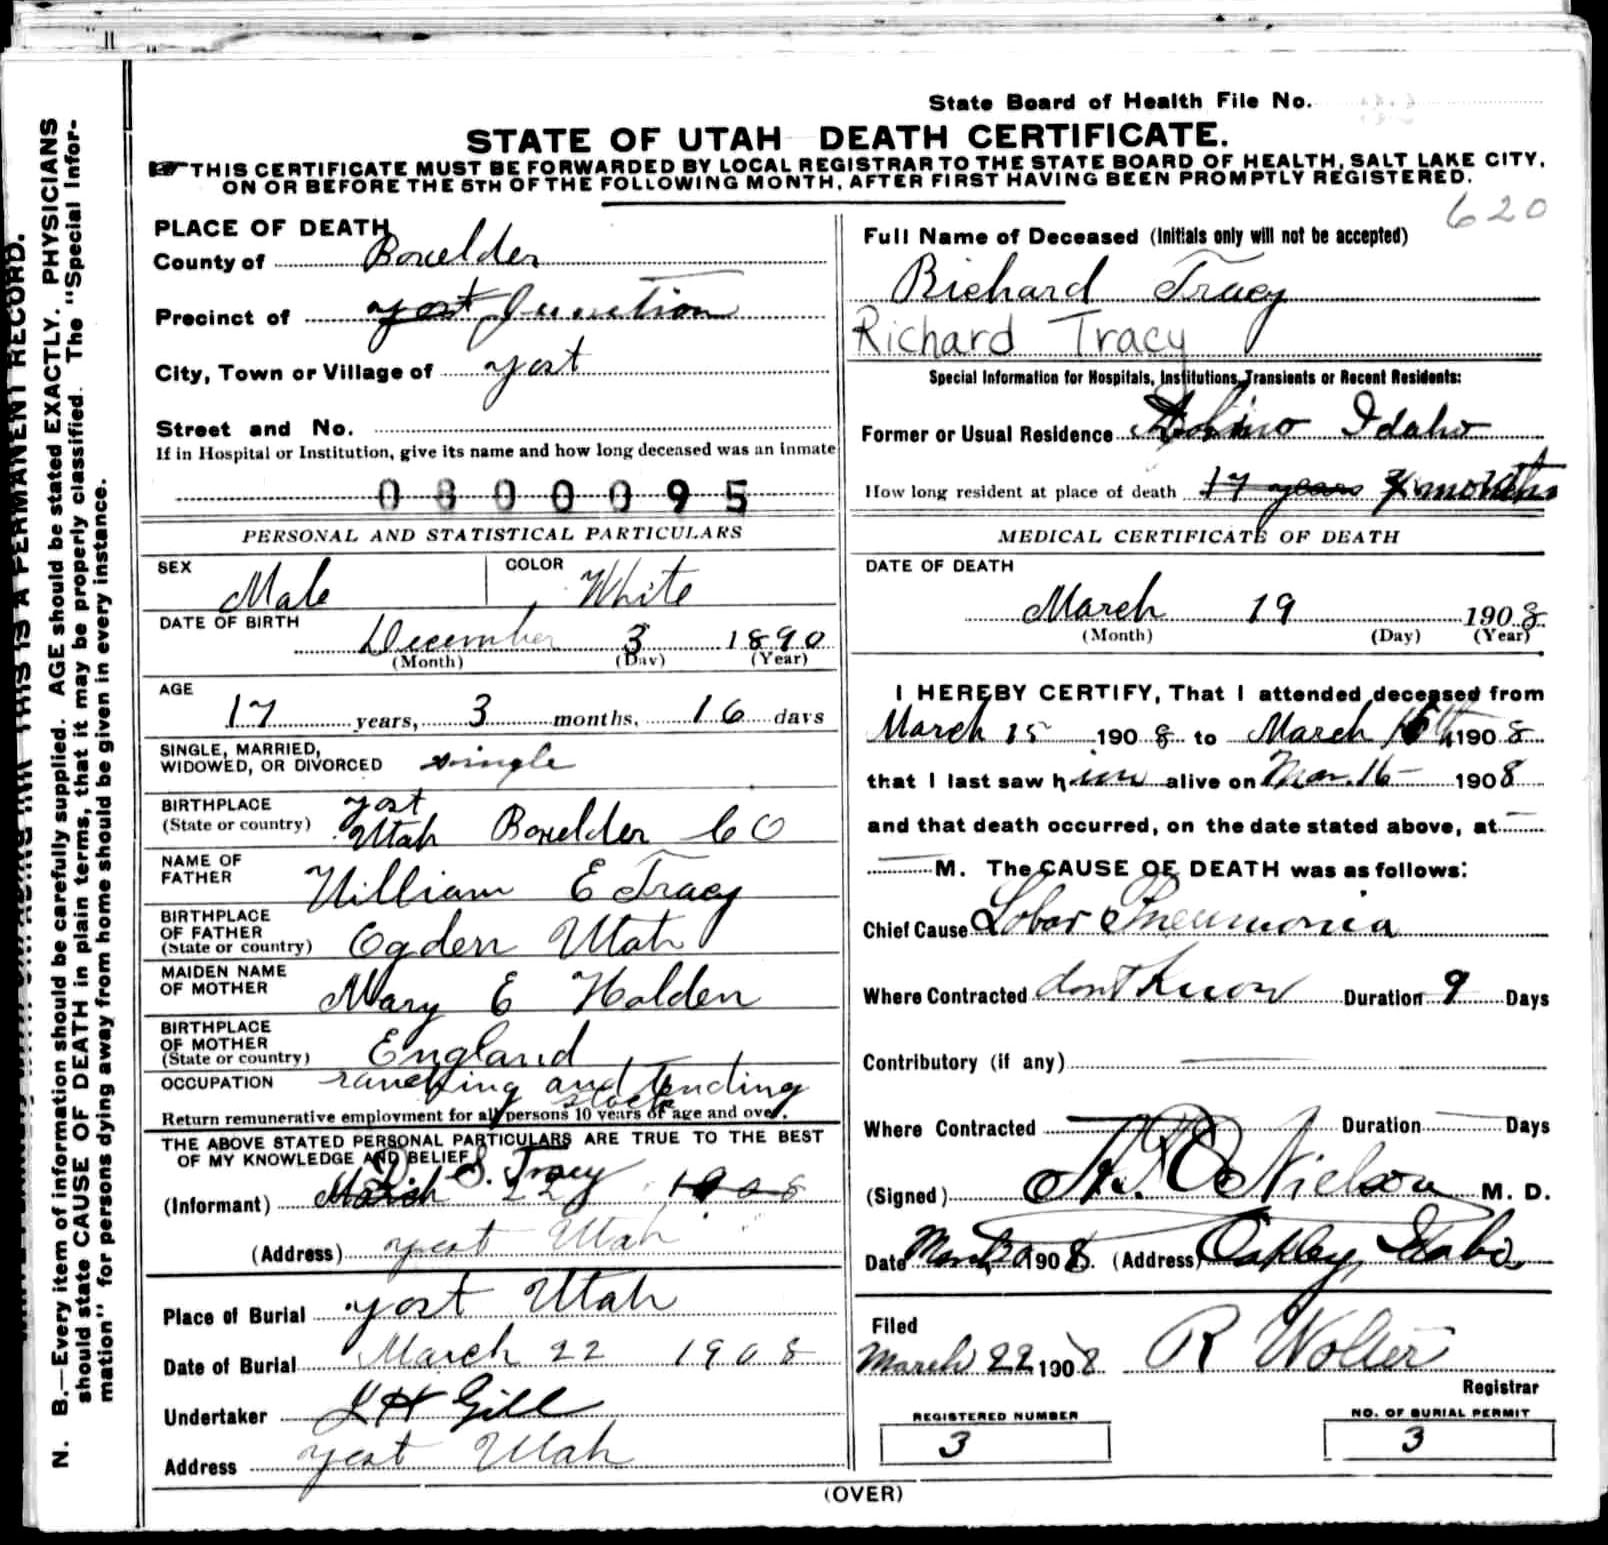 State Board of Health File No.
STATE OF UTAH DEATH CERTIFICATE.
THIS CERTIFICATE MUST BE FORWARDED BY LOCAL REGISTRAR TO THE STATE BOARD OF HEALTH, SALT LAKE CITY,
ON OR BEFORE THE 5TH OF THE FOLLOWING MONTH, AFTER FIRST HAVING BEEN PROMPTLY REGISTERED.
620
N. B.—Every item of information should be carefully supplied. AGE should be stated EXACTLY. PHYSICIANS
should state CAUSE OF DEATH in plain terms, that it may be properly classified. The "Special Infor-
mation" for persons dying away from home should be given in every instance.
THIS IS A PERMANENT RECORD.
PLACE OF DEATH
County of Boxelder
Precinct of Yost Junction
City, Town or Village of Yost
Street and No.
If in Hospital or Institution, give its name and how long deceased was an inmate
0800095
PERSONAL AND STATISTICAL PARTICULARS
SEX Male COLOR White
DATE OF BIRTH
December 3 1890
(Month) (Day) (Year)
AGE
17 years, 3 months, 16 days
SINGLE, MARRIED,
WIDOWED, OR DIVORCED single
BIRTHPLACE Yost
(State or country) Utah Boxelder CO
NAME OF
FATHER William E Tracy
BIRTHPLACE
OF FATHER
(State or country) Ogden Utah
MAIDEN NAME
OF MOTHER Mary E Holden
BIRTHPLACE
OF MOTHER
(State or country) England
OCCUPATION ranching and tending
stock
Return remunerative employment for all persons 10 years of age and over.
THE ABOVE STATED PERSONAL PARTICULARS ARE TRUE TO THE BEST
OF MY KNOWLEDGE AND BELIEF
S. Tracy
(Informant) March 22 1908
(Address) Yost Utah
Place of Burial Yost Utah
Date of Burial March 22 1908
Undertaker L H Gill
Address Yost Utah
Full Name of Deceased (Initials only will not be accepted)
Richard Tracy
Richard Tracy
Special Information for Hospitals, Institutions, Transients or Recent Residents:
Former or Usual Residence Idaho
How long resident at place of death 17 years months
MEDICAL CERTIFICATE OF DEATH
DATE OF DEATH
March 19 1908
(Month) (Day) (Year)
I HEREBY CERTIFY, That I attended deceased from
March 15 1908 to March 16th 1908
that I last saw him alive on Mar. 16 1908
and that death occurred, on the date stated above, at
M. The CAUSE OF DEATH was as follows:
Chief Cause Lobar Pneumonia
Where Contracted don't know Duration 9 Days
Contributory (if any)
Where Contracted Duration Days
(Signed) Nielson M. D.
Date March 20 1908. (Address) Oakley, Idaho
Filed
March 22 1908 R Wolter
Registrar
REGISTERED NUMBER
3
NO. OF BURIAL PERMIT
3
(OVER)